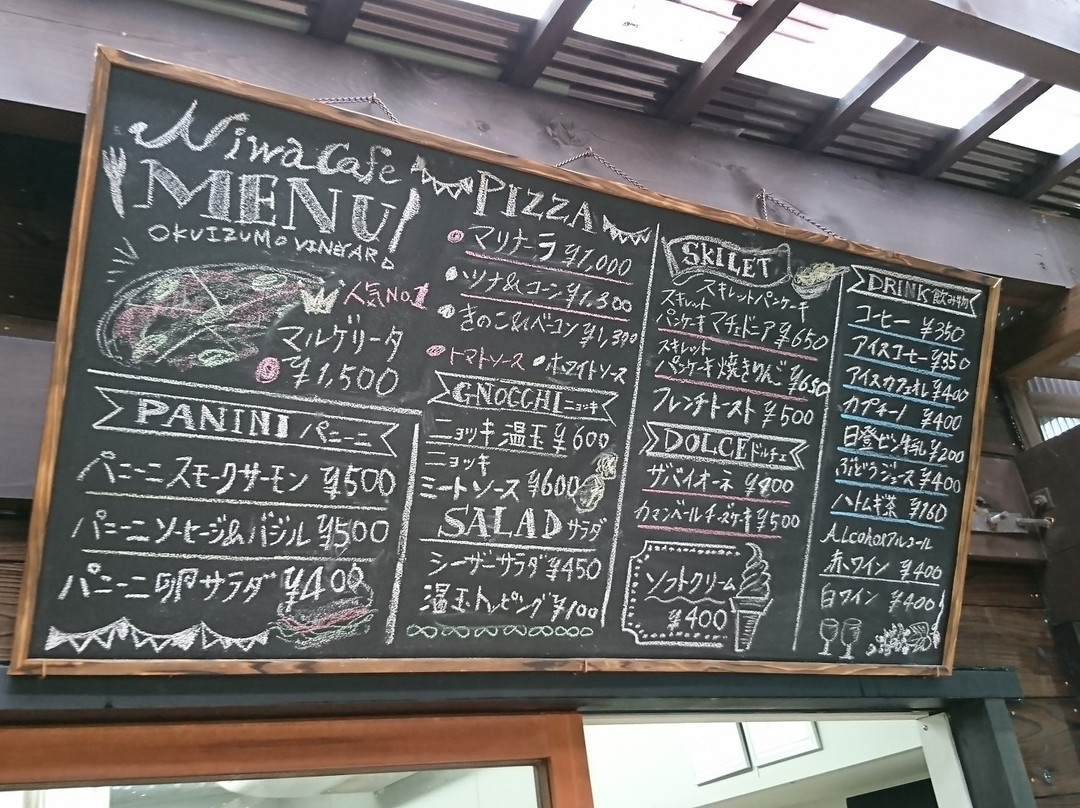 Niwacafe
MENU
OKUIZUMO VINEYARD
人気No.1
マルゲリータ
¥1,500
PANINI パニーニ
パニーニスモークサーモン ¥500
パニーニソーセージ&バジル ¥500
パニーニ卵サラダ ¥400
PIZZA
マリナーラ ¥1,000
ツナ&コーン ¥1,300
きのこ&ベーコン ¥1,300
トマトソース ホワイトソース
GNOCCHI ニョッキ
ニョッキ 温玉 ¥600
ニョッキ
ミートソース ¥600
SALAD サラダ
シーザーサラダ ¥450
温玉トッピング ¥100
SKILET
スキレットパンケーキ
スキレット
パンケーキ マチェドニア ¥650
スキレット
パンケーキ 焼きりんご ¥650
フレンチトースト ¥500
DOLCE ドルチェ
ザバイオーネ ¥400
カマンベールチーズケーキ ¥500
ソフトクリーム
¥400
DRINK 飲み物
コーヒー ¥350
アイスコーヒー ¥350
アイスカフェオレ ¥400
カプチーノ ¥400
日登ビン牛乳 ¥200
ぶどうジュース ¥400
ハトムギ茶 ¥160
Alcohol アルコール
赤ワイン ¥400
白ワイン ¥400